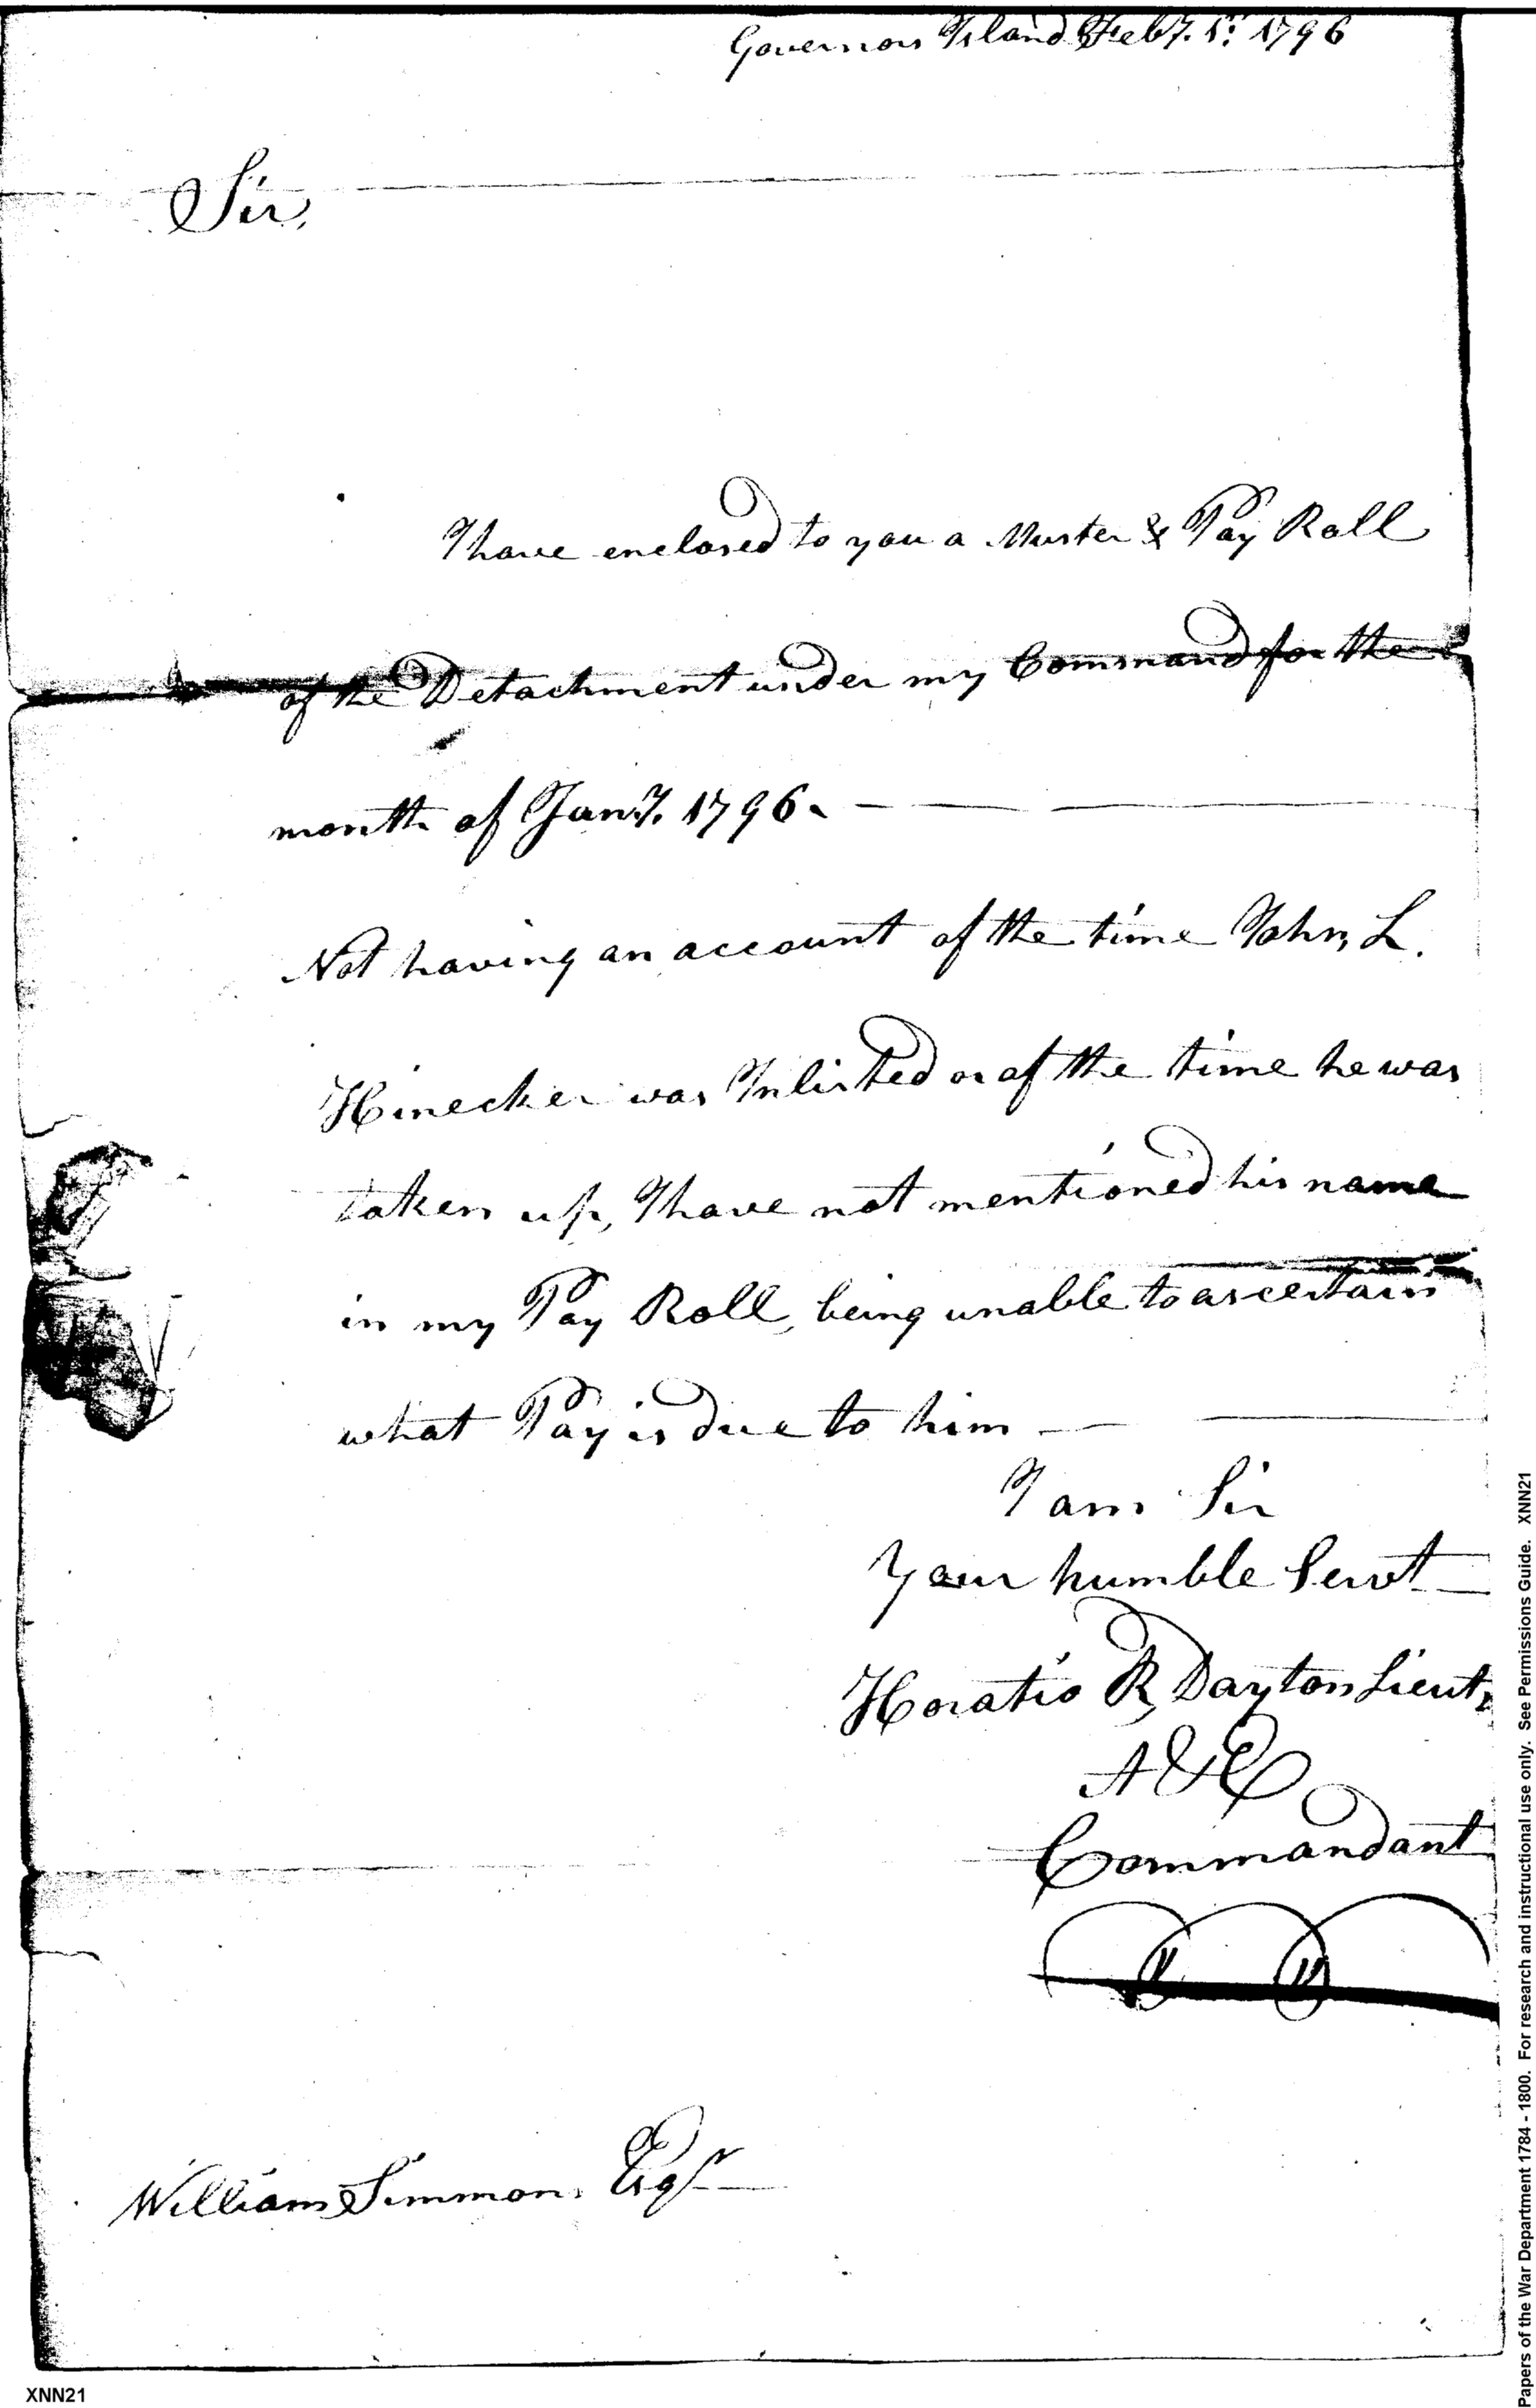 Governors Island Feby. 1st. 1796
Sir,
I have enclosed to you a Muster & Pay Roll
of the Detachment under my Command for the
month of Jany. 1796.
Not having an account of the time John, L.
Hinecker was Inlisted or of the time he was
taken up, I have not mentioned his name
in my Pay Roll, being unable to ascertain
what Pay is due to him
I am Sir
Your humble Servt
Horatio R, Dayton Lieut,
A & E
Commandant
William Simmons Esqr
Papers of the War Department 1784 - 1800. For research and instructional use only. See Permissions Guide. XNN21
XNN21